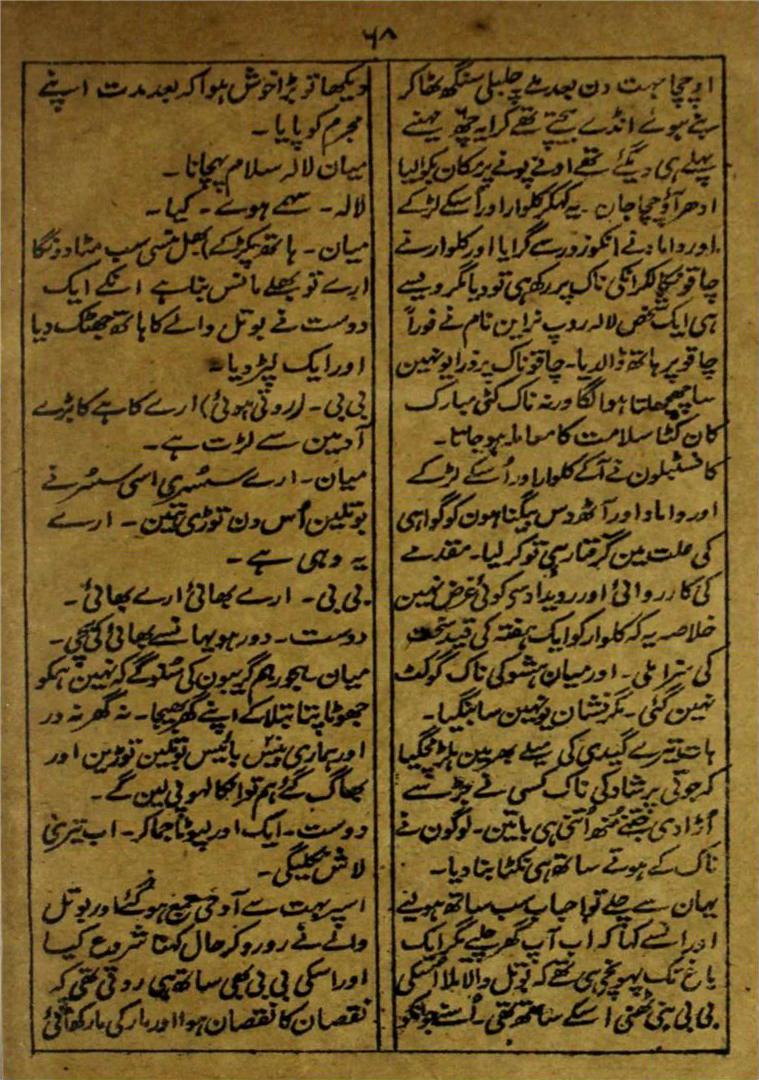 ۶۸
او چچا بہت دن بعد ملے چلبلی سنگھ ٹھاکر
بنے ہوئے انڈے بیچتے تھے کرایہ چھ مہینے
پہلے ہی دیگئے تھے اونے پونے پر مکان بکوالیا
ادھر آؤ چچا جان۔ یہ کہکر کلوار اور اُسکے لڑکے
اور داماد نے انکو زور سے گرایا اور کلوار نے
چاقو نکالکر انکی ناک پر رکھ ہی تو دیا مگر ویسے
ہی ایک شخص لالہ روپ نراین نام نے فوراً
چاقو پر ہاتھ ڈالدیا۔ چاقو ناک پر ذرا یونہین
سا چھچھلتا ہوا لگا ورنہ ناک کٹی مبارک
کان کٹا سلامت کا معاملہ ہوجاتا۔
کانسٹبلون نے آکے کلوار اور اُسکے لڑکے
اور داماد اور آٹھ دس بیگناہون کو گواہی
کی علت مین گرفتار ہی تو کرلیا۔ مقدمے
کی کارروائی اور رویداد سے کوئی غرض نہین
خلاصہ یہ کہ کلوار کو ایک ہفتہ کی قید سخت
کی سزا ملی۔ اور میان ہشو کی ناک گو کٹ
نہین گئی۔ مگر نشان یونہین سا بنگیا۔
ہات تیرے گیدی کی سے بھر مین ہلڑ مچگیا
کہ جوتی پرشاد کی ناک کسی نے جڑ سے
اُڑا دی جتنے مُنھ اُتنی ہی باتین۔ لوگون نے
ناک کے ہوتے ساتھ ہی نکٹا بنا دیا۔
یہان سے چلے تو احباب سب ساتھ ہولیے
اور اُنسے کہا کہ اب آپ گھر چلے مگر ایک
باغ تک پہونچے ہی تھے کہ بوتل والا ملا اُسکی
بی بی بنی ٹھنی اسکے ساتھ تھی۔ اُسنے جو انکو
دیکھا تو بڑا خوش ہوا کہ بعد مدت اپنے
مجرم کو پایا۔
میان لالہ سلام پہچانا۔
لالہ۔ سہمے ہوے۔ کیا۔
میان۔ ہاتھ پکڑ کے) بھل منسی سب مٹا دونگا
ارے تو بھلے مانس بنا ہے انکے ایک
دوست نے بوتل والے کا ہاتھ جھٹک دیا
اور ایک لپڑ دیا۔
بی بی۔ (روتی ہوئی) ارے کا ہے کا بڑے
آدمین سے لڑت ہے۔
میان۔ ارے سسُری اسی سسُر نے
بوتلین اُس دن توڑی تھین۔ ارے
یہ وہی ہے۔
بی بی۔ ارے بھائی ارے بھائی۔
دوست۔ دور ہو یہانسے بھائی کی بچی۔
میان۔ ہجور ہم گریبون کی سُنوگے کہ نہین ہمکو
جھوٹا پتا بتلا کے اپنے گھر بھیجا۔ نہ گھر نہ در
اور ہماری بیس بائیس بوتلین توڑین اور
بھاگ گئے ہم تو انکا لہو پی لین گے۔
دوست۔ ایک اور لپوٹا جماکر۔ اب تیری
لاش نکلیگی۔
اسپر بہت سے آدمی جمع ہوگئے اور بوتل
والے نے رو رو کر حال کہنا شروع کیا
اور اسکی بی بی بھی ساتھ ہی روتی تھی کہ
نقصان کا نقصان ہوا اور مار کی مار کھائی